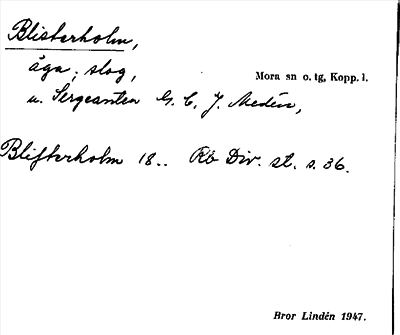 Blisterholm,
äga; slog, Mora sn o. tg, Kopp. l.
u. Sergeanten G. C. J. Medén,
Blifterholm 18.. Rb Div. st. s. 36.
Bror Lindén 1947.